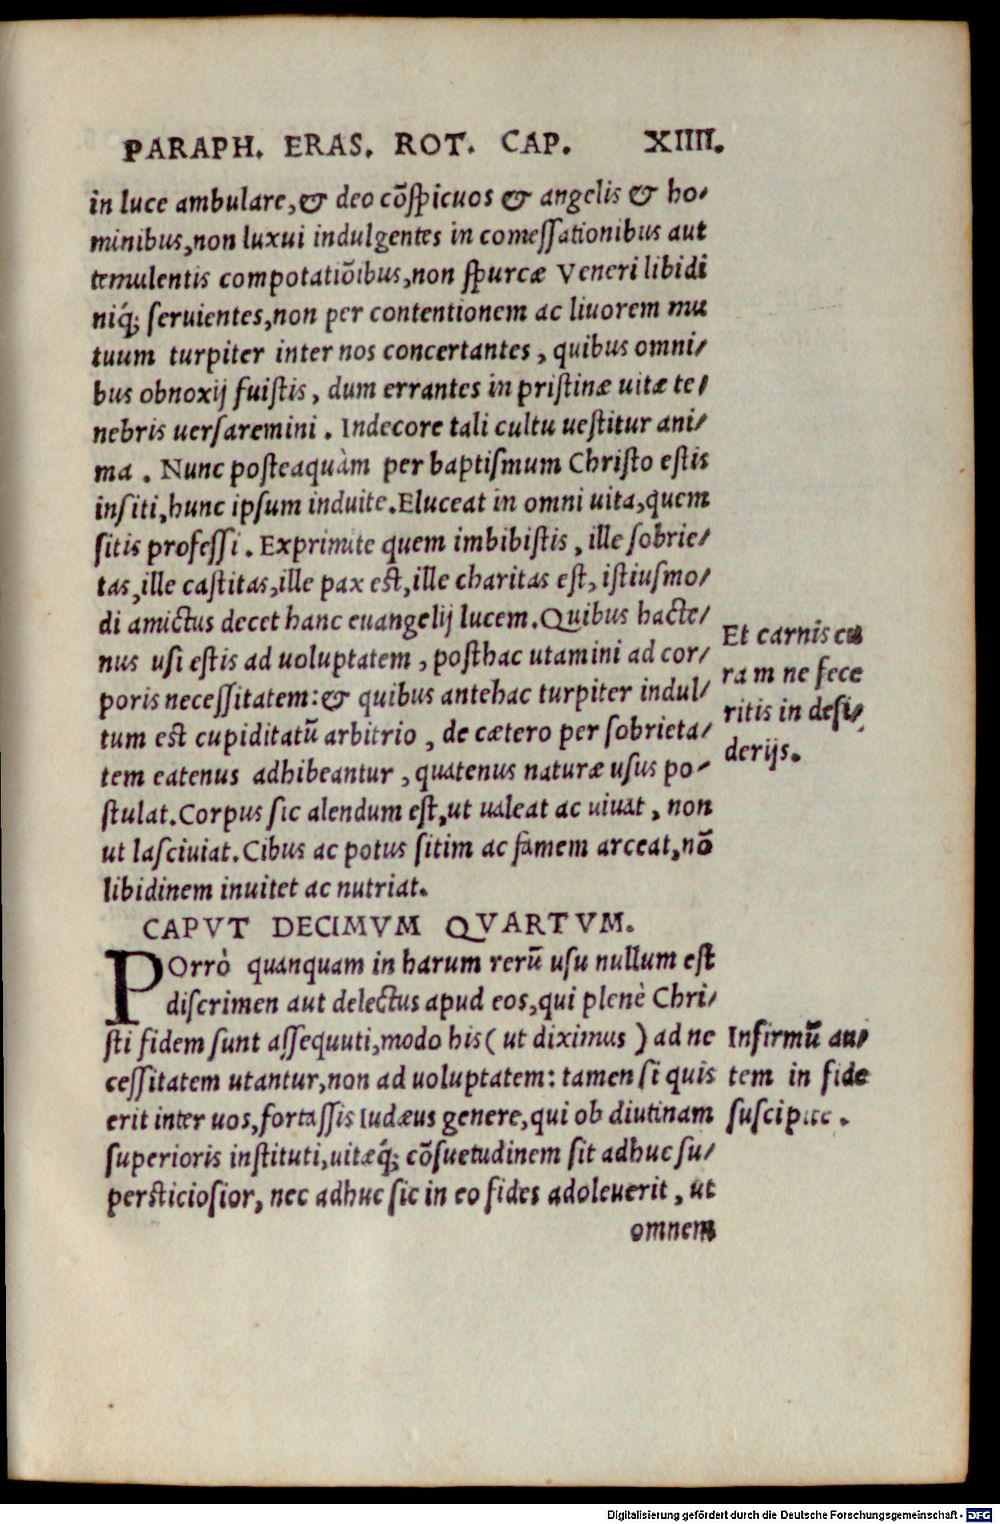 PARAPH. ERAS. ROT. CAP. XIIII.
in luce ambulare,& deo cōſpicuos & angelis & ho/
minibus,non luxui indulgentes in comeſſationibus aut
temulentis compotatiōibus,non ſpurcæ Veneri libidi
niq́; ſeruientes,non per contentionem ac liuorem mu
tuum turpiter inter nos concertantes, quibus omni/
bus obnoxij fuiſtis, dum errantes in priſtinæ uitæ te/
nebris uerſaremini. Indecore tali cultu ueſtitur ani/
ma. Nunc poſteaquàm per baptiſmum Chriſto eſtis
inſiti,hunc ipſum induite.Eluceat in omni uita,quem
ſitis profeſſi. Exprimite quem imbibiſtis, ille ſobrie/
tas,ille caſtitas,ille pax eſt,ille charitas eſt, iſtiuſmo/
di amictus decet hanc euangelij lucem.Quibus hacte/
nus uſi eſtis ad uoluptatem, poſthac utamini ad cor/
poris neceſſitatem:& quibus antehac turpiter indul/
tum eſt cupiditatū arbitrio, de cætero per ſobrieta/
tem eatenus adhibeantur, quatenus naturæ uſus po/
ſtulat.Corpus ſic alendum eſt,ut ualeat ac uiuat, non
ut laſciuiat.Cibus ac potus ſitim ac famem arceat,nō
libidinem inuitet ac nutriat.
Et carnis cu
ram ne fece
ritis in deſi/
derijs.
CAPVT DECIMVM QVARTVM.
POrrò quanquam in harum rerū uſu nullum eſt
diſcrimen aut delectus apud eos,qui plenè Chri/
ſti fidem ſunt aſſequuti,modo his( ut diximus ) ad ne
ceſſitatem utantur,non ad uoluptatem: tamen ſi quis
erit inter uos,fortaſſis Iudæus genere,qui ob diutinam
ſuperioris inſtituti,uitæq́; cōſuetudinem ſit adhuc ſu/
perſticioſior, nec adhuc ſic in eo fides adoleuerit, ut
omnem
Infirmū au/
tem in fide
ſuſcipite.
Digitalisierung gefördert durch die Deutsche Forschungsgemeinschaft - DFG